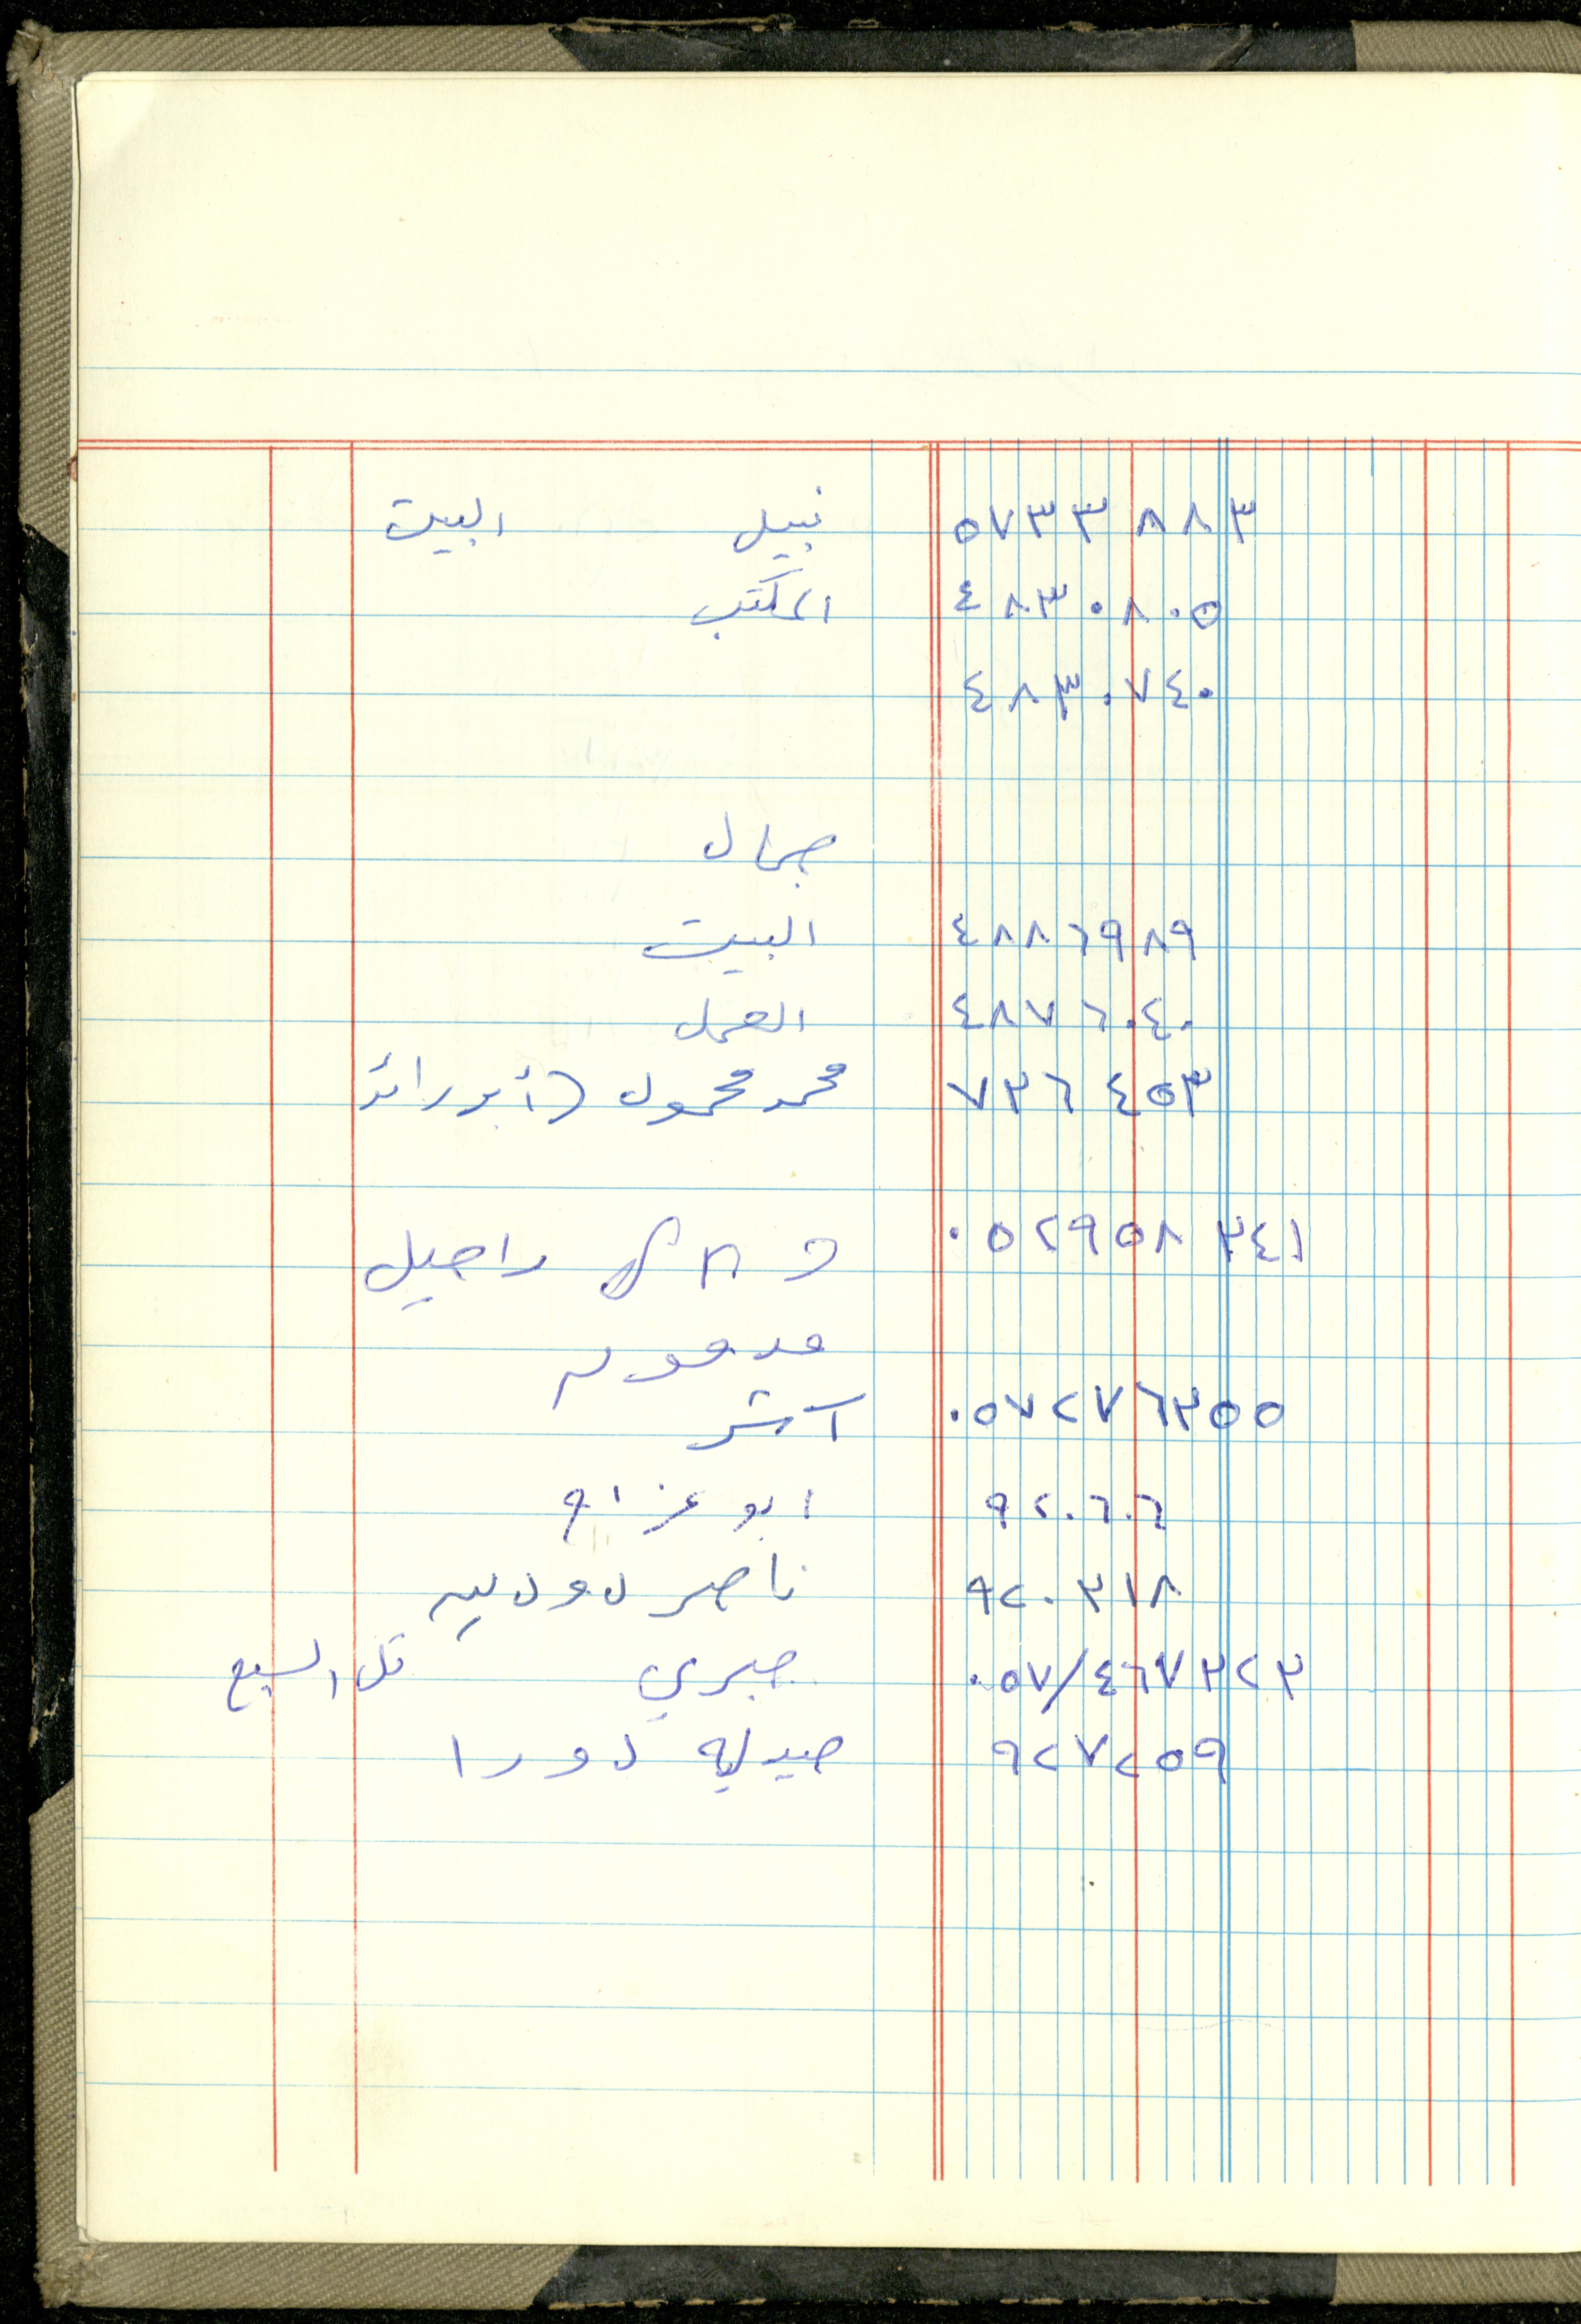 نبيل البيت ٥٧٣٣٨٨٣
المكتب ٤٨٣٠٨٠٥
٤٨٣٠٧٤٠
جمال
البيت ٤٨٨٦٩٨٩
العمل ٤٨٧٦٠٤٠
محمد محمود (أبو رائد ٧٣٦٤٥٣
راحيل ٠٥٢٩٥٨٣٤١
آشر ٠٥٧٢٧٦٣٥٥
ابو عزام ٩٢٠٦٠٦
ناصر دودين ٩٢٠٣١٨
جبري تل السبع ٠٥٧/٤٦٧٣٢٣
صيدلية دورا ٩٢٧٢٥٩